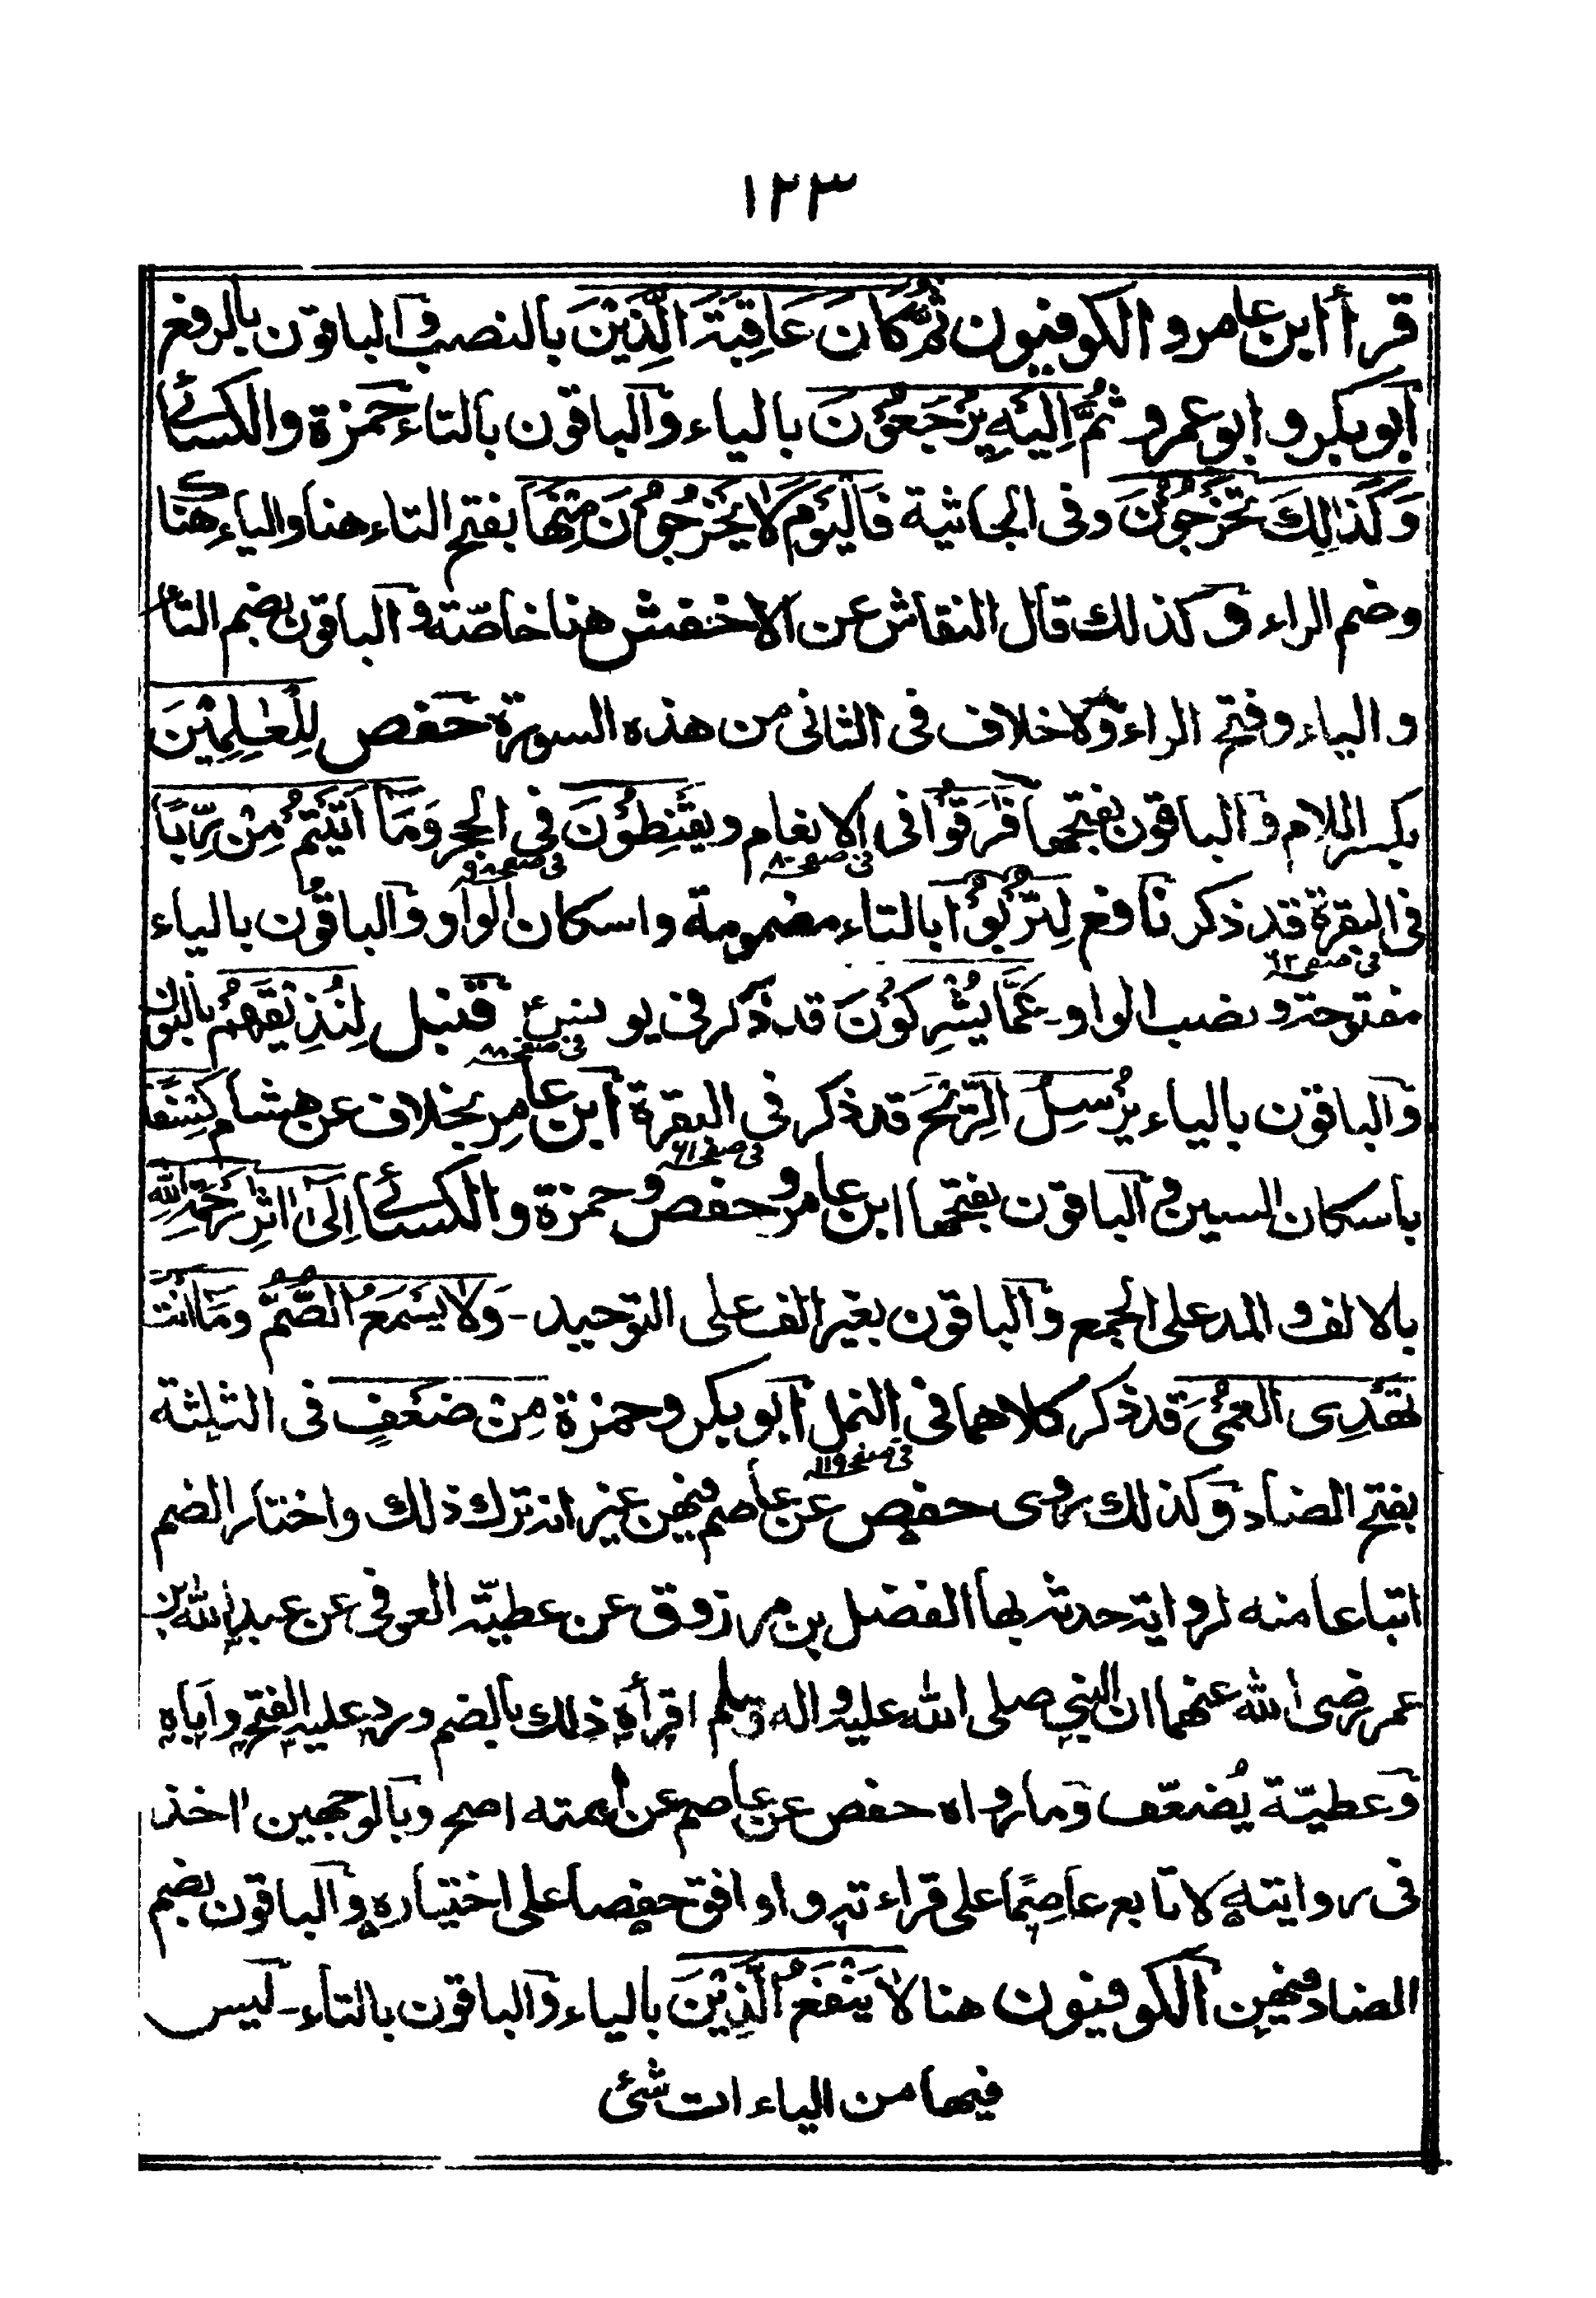 ١٢٣
قرأ ابن عامر و الكوفيون ثُمَّ كَانَ عَاقِبَةَ الَّذِيْنَ بالنصب والباقون بالرفع
ابو بكر و ابو عمرو ثُمَّ اِلَيْهِ يُرْجَعُوْنَ بالياء والباقون بالتاء حمزة والكسائى
وَكَذٰلِكَ تَخْرُجُوْنَ وفى الجاثية فَالْيَوْمَ لَا يَخْرُجُوْنَ مِنْهَا بفتح التاء هنا والياء هناك
وضم الراء وكذلك قال النقاش عن الاخفش هنا خاصّة والباقون بضم التاء
والياء وفتح الراء ولاخلاف فى الثانى من هذه السورة حفص لِلْعٰلِمِيْنَ
بكسر اللام والباقون بفتحها فَرَّقُوْا فى الانعام ويَقْنِطُوْنَ فى الحجر وَمَا اٰتَيْتُمْ مِنْ رِّبًا
فى صفحه ٨٠ فى صفحه ٩٨
فى البقرة قد ذكر نافع لِتُرْبُوْا بالتاء مضمومة واسكان الواو والباقون بالياء
فى صفحه ٦٢
مفتوحة ونصب الواو - عَمَّا يُشْرِكُوْنَ قد ذكر فى يونس قنبل لِنُذِيْقَهُمْ بالنون
فى صفحه ٨٨
والباقون بالياء يُرْسِلُ الرِّيْحَ قد ذكر فى البقرة ابن عامر بخلاف عن هشام كِسْفًا
فى صفحه ٦١
باسكان السين والباقون بفتحها ابن عامر وحفص وحمزة والكسائى اِلٰى اٰثٰرِ رَحْمَةِ اللّٰهِ
بالالف والمد على الجمع والباقون بغير الف على التوحيد - وَلَا يَسْمَعُ الصُّمُّ وَمَا اَنْتَ
تَهْدِى الْعُمْىَ قد ذكر كلاهما فى النمل ابو بكر وحمزة مِنْ ضَعْفٍ فى الثلثة
فى صفحه ١١٩
بفتح الضاد وكذلك روى حفص عن عاصم فيهن غير انه ترك ذلك واختار الضم
اتباعا منه لرواية حدثه بها الفضل بن مرزوق عن عطيّة العوفى عن عبد الله بن
عمر رضى الله عنهما ان النبى صلى الله عليه واله وسلم اقرأه ذلك بالضم ورد عليه الفتح واباه
وعطيّة يُضعّف وما رواه حفص عن عاصم عن ائمته اصح وبالوجهين اخذ
فى روايته لاتابع عاصمًا على قراءته واوافق حفصا على اختياره والباقون بضم
الضاد فيهن الكوفيون هنا لَا يَنْفَعُ الَّذِيْنَ بالياء والباقون بالتاء - ليس
فيها من الياءات شئ